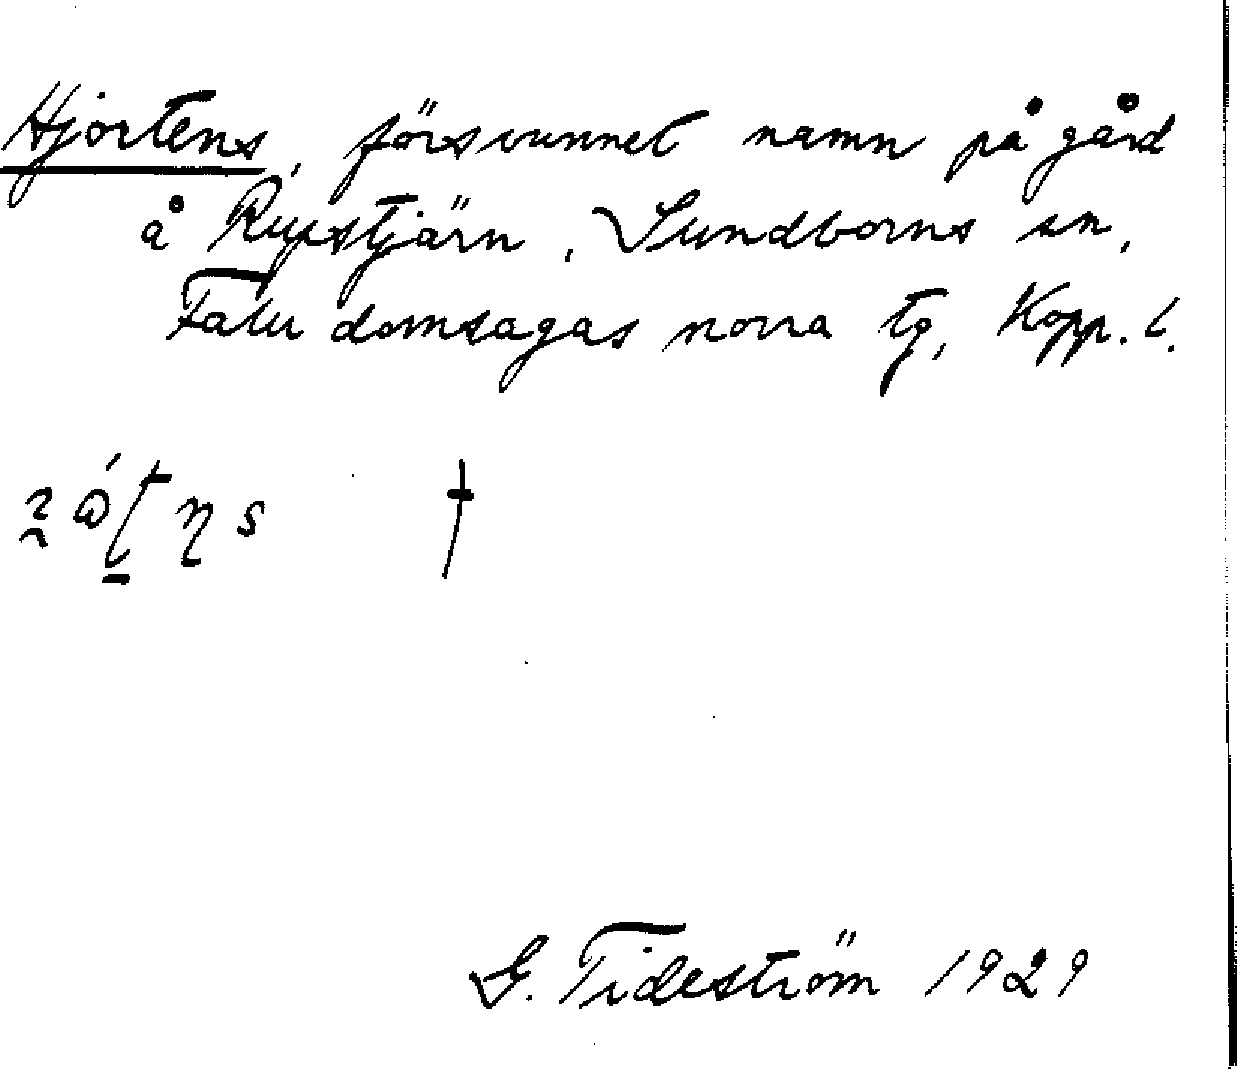 Hjortens, försvunnet namn på gård
å Rupstjärn, Sundborns sn,
Falu domsagas norra tg, Kopp. l.
†
G. Tideström 1929